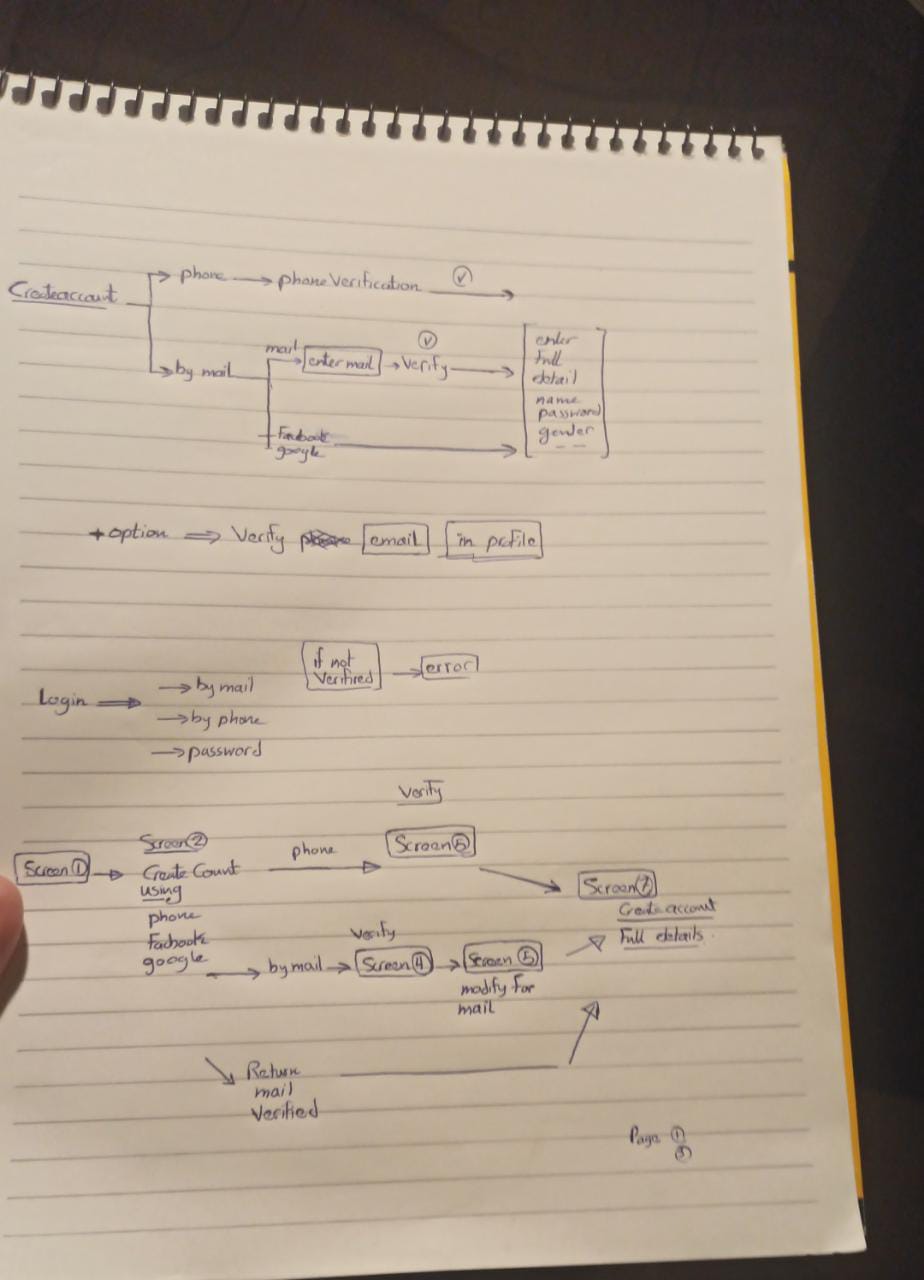 phone → phone Verification (v) →
Create account
mail
(v)
by mail
enter mail → Verify →
enter
full
detail
name
password
gender
Facbook
google
+ option ⇒ Verify email in profile
if not
Verifired → error
Login ⇒
→ by mail
→ by phone
→ password
Verify
Screen ① →
Screen ②
Create Count
using
phone
Facbook
google
phone
Screen
Screen ⑦
Create account
Full details.
Verify
→ by mail → Screen ④ → Screen ⑤
modify for
mail
Return
mail
Verified
Page ①